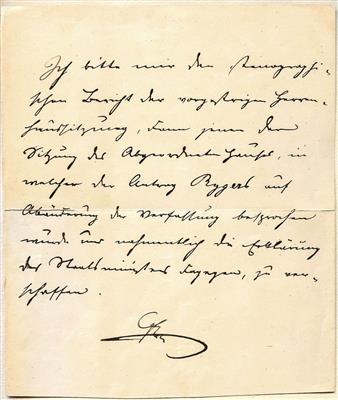 Ich bitte mir den stenographi-
schen Bericht der vorgestrigen Herren-
haussitzung, dann jenen der
Sitzung des Abgeordneten Hauses, in
welcher der Antrag Rygers auf
Abänderung der Verfassung besprochen
wurde und nahmentlich die Erklärung
des Staatsministers dagegen, zu ver-
schaffen.